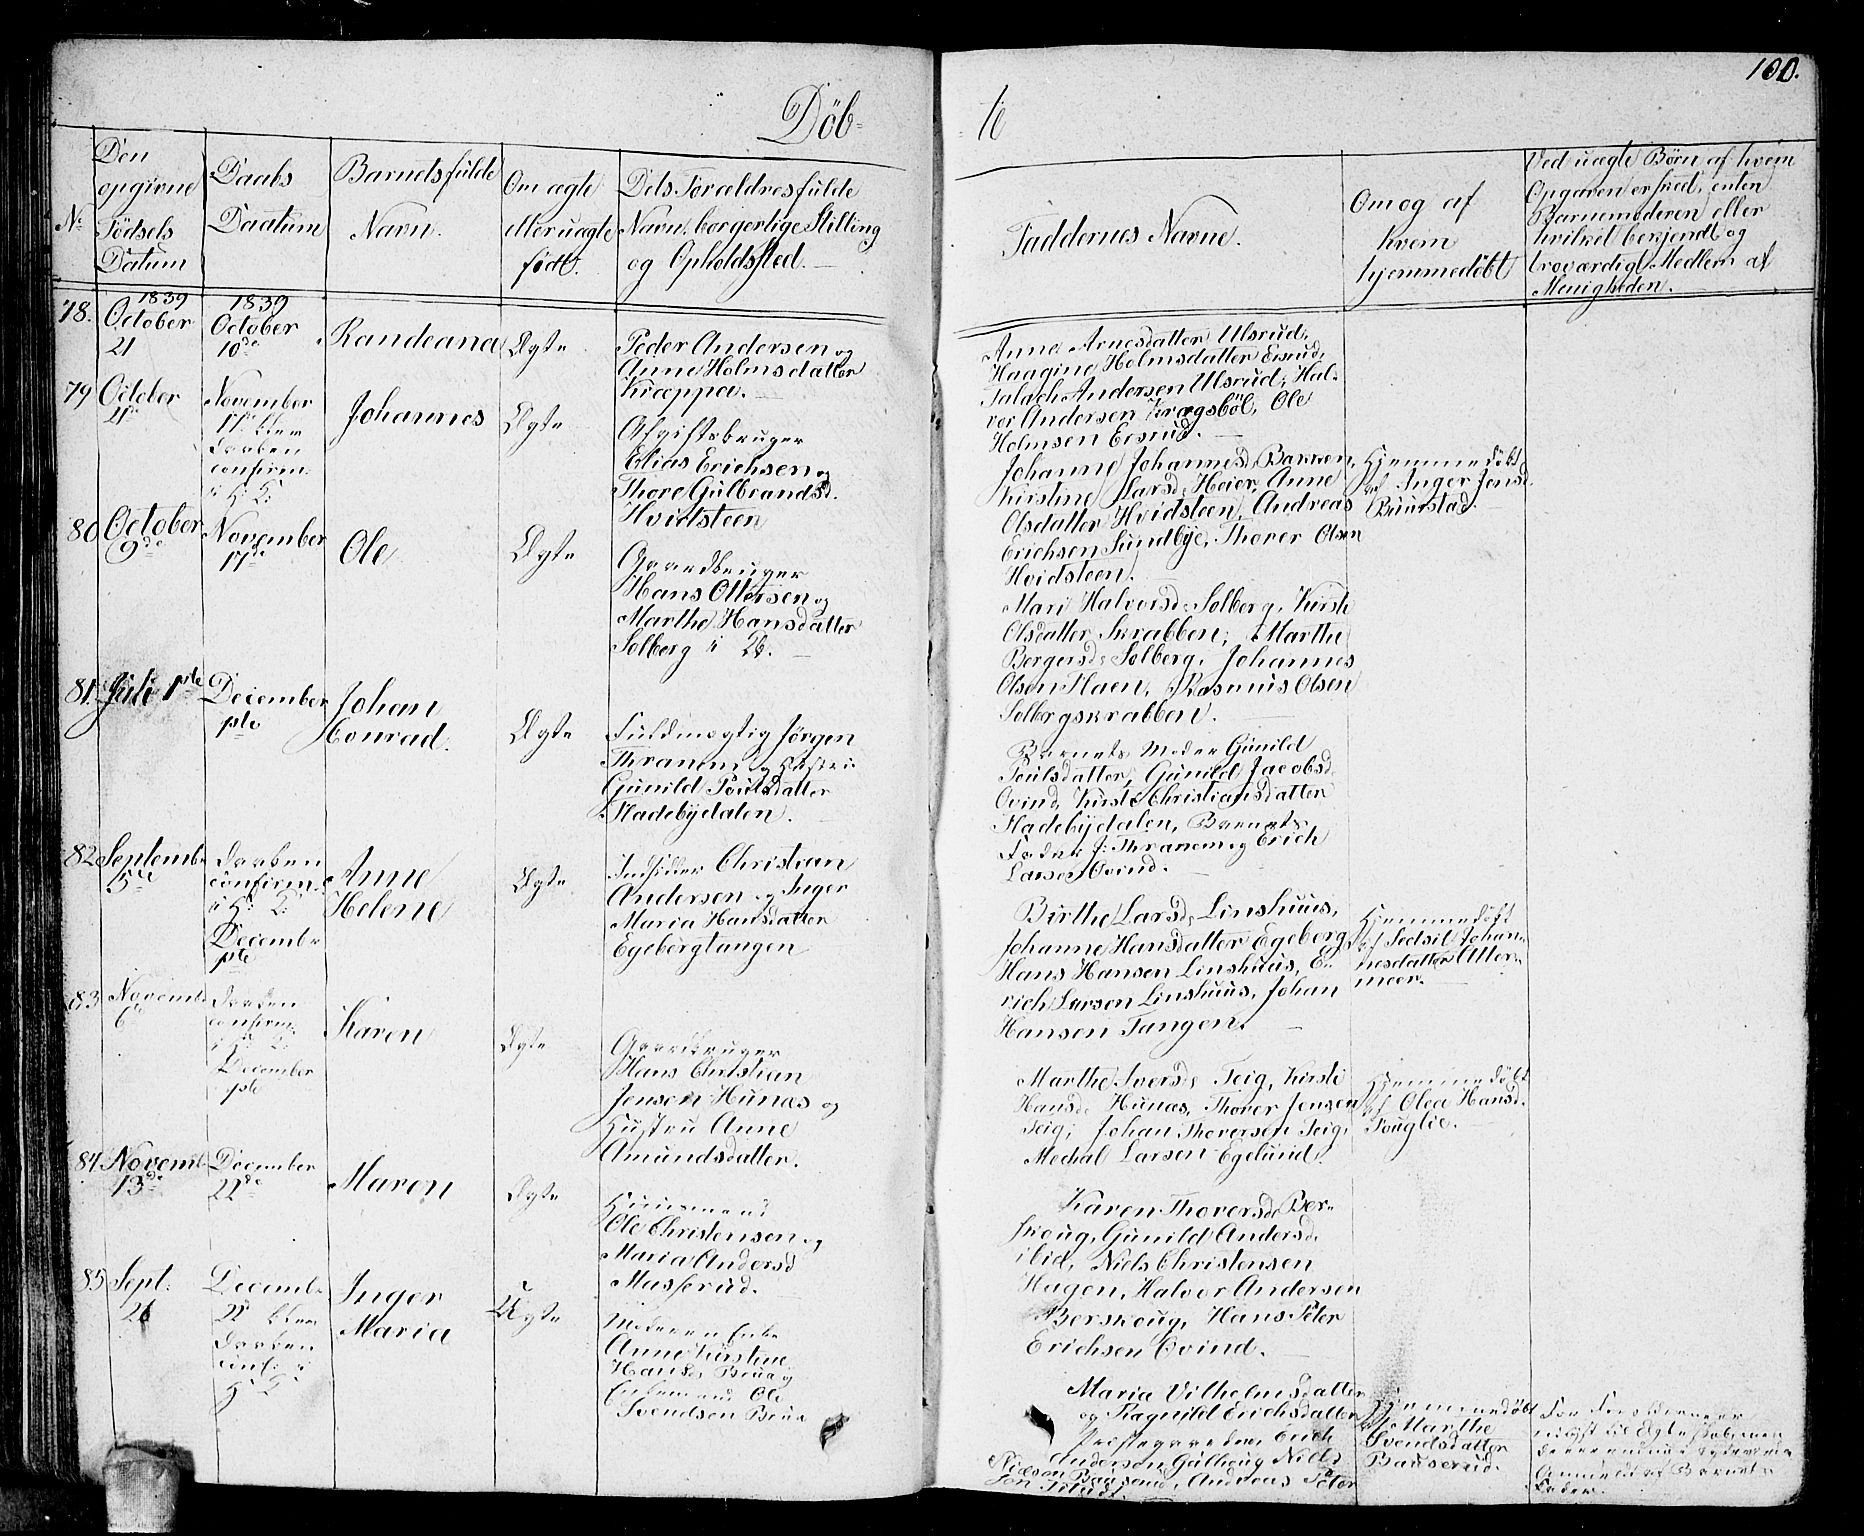 Döb-
te
100.
No
Den opgivne Fødsels Datum
Daabs Daatum
Barnets fulde Navn.
Om ægte eller uægte født.
Dets Forældres fulde Navn, borgerlige Stilling og Opholdssted.
Faddernes Navne.
Om og af hvem hjemmedöbt
Ved uægte Børn af hvem Opgaven er skeed, enten Barnemoderen eller hvilket bekjendt og troværdigt Medlem af Menigheden.
78.
1839
October
21
1839
October
10de
Randeana
Ægte
Peder Andersen og
Anne Holmsdatter
Kræppa.
Anne Arnesdatter Ulsrud,
Haagine Holmsdatter Eisrud,
Andersen Ulsrud, Hal-
vor Andersen Kragsböl, Ole
Holmsen Eisrud.
79
October
November
17de blev
Daaben
confirm:
i H: K:
Johannes
Ægte
Afgiftsbruger
Elias Erichsen og
Thore Gulbrandsd.
Hvidsteen
Johanne Johannesd. Bakken,
Kirstine Larsd. Heier, Anne
Olsdatter Hvidsteen, Andreas
Erichsen Sundbye, Thorer Olsen
Hvidsteen.
Hjemmedöbt
af Inger Jensd.
Buurstad.
80
October
9de
November
17de
Ole
Ægte
Gaardbruger
Hans Ottersen og
Marthe Hansdatter
Solberg i
Mari Halvorsd. Solberg, Kirsti
Olsdatter Skrabben, Marthe
Bergersd. Solberg, Johannes
Olsen Haen, Rasmus Olsen
Solbergskrabben.
81.
Juli 1ste
December
1ste
Johan
Conrad.
Ægte
Fuldmægtig Jørgen
Thranem og Hustru
Gunild Poulsdatter
Hadebyedalen.
Barnets Moder Gunild
Poulsdatter, Gunild Jacobsd.
Ovind, Kirsti Christiansdatter
Hadebyedalen, Barnets
Fader J: Thranem og Erich
Larsen Ovind.
82
Septemb.
5te
Daaben
confirm.
i H: K:
Decembr
1ste
Anne
Helene
Ægte
Indsidder Christian
Andersen og Inger
Maria Hansdatter
Egebergtangen
Birthe Larsd. Linshuus,
Johanne Hansdatter Egeberg,
Hans Hansen Linshuus, E-
rich Larsen Linshuus, Johan
Hansen Tangen.
Hjemmedöbt
af Sedsil Johan-
nesdatter Utter-
meer.
83
Novemb.
6
Daaben
confirm.
i H: K:
December
1ste
Karen
Ægte
Gaardbruger
Hans Christian
Jensen Hunæs og
Hustru Anne
Amundsdatter.
Marthe Iversd. Teig, Kirsti
Hansd. Hunæs, Thorer Jensen
Teig, Johan Thoersen Teig,
Mechal Larsen Egelund.
Hjemmedöbt
af Olea Hansd.
Fouglie.
84
Novemb.
13de
December
22de
Maren
Ægte
Huusmand
Ole Christensen og
Maria Andersd
Musserud.
Karen Thorersd. Ber-
skoug, Gunild Andersd.
ibid, Niels Christensen
Hagen, Halvor Andersen
Berskoug, Hans Peter
Erichsen Ovind.
85
Sept:
26
Decemb.
22de blev
Daaben
conf: i
H: K:
Inger
Maria
Uægte
Moderen Enke
Anne Kirstine
Hansd. Brua og
Enkemand Ole
Svendsen Brua
Maria Vilhelmsdatter
og Ragnild Erichsdatter
Præstegaarden, Erich
Andersen Gulhaug, Niels
Nielsen Bauserud, Andreas Peter
Hjemmedöbt
af Marthe
Svendsdatter
Bauserud.
For Forældrene er
lyst til Ægteskab, men
Anmeldt af Barnets
Fader.